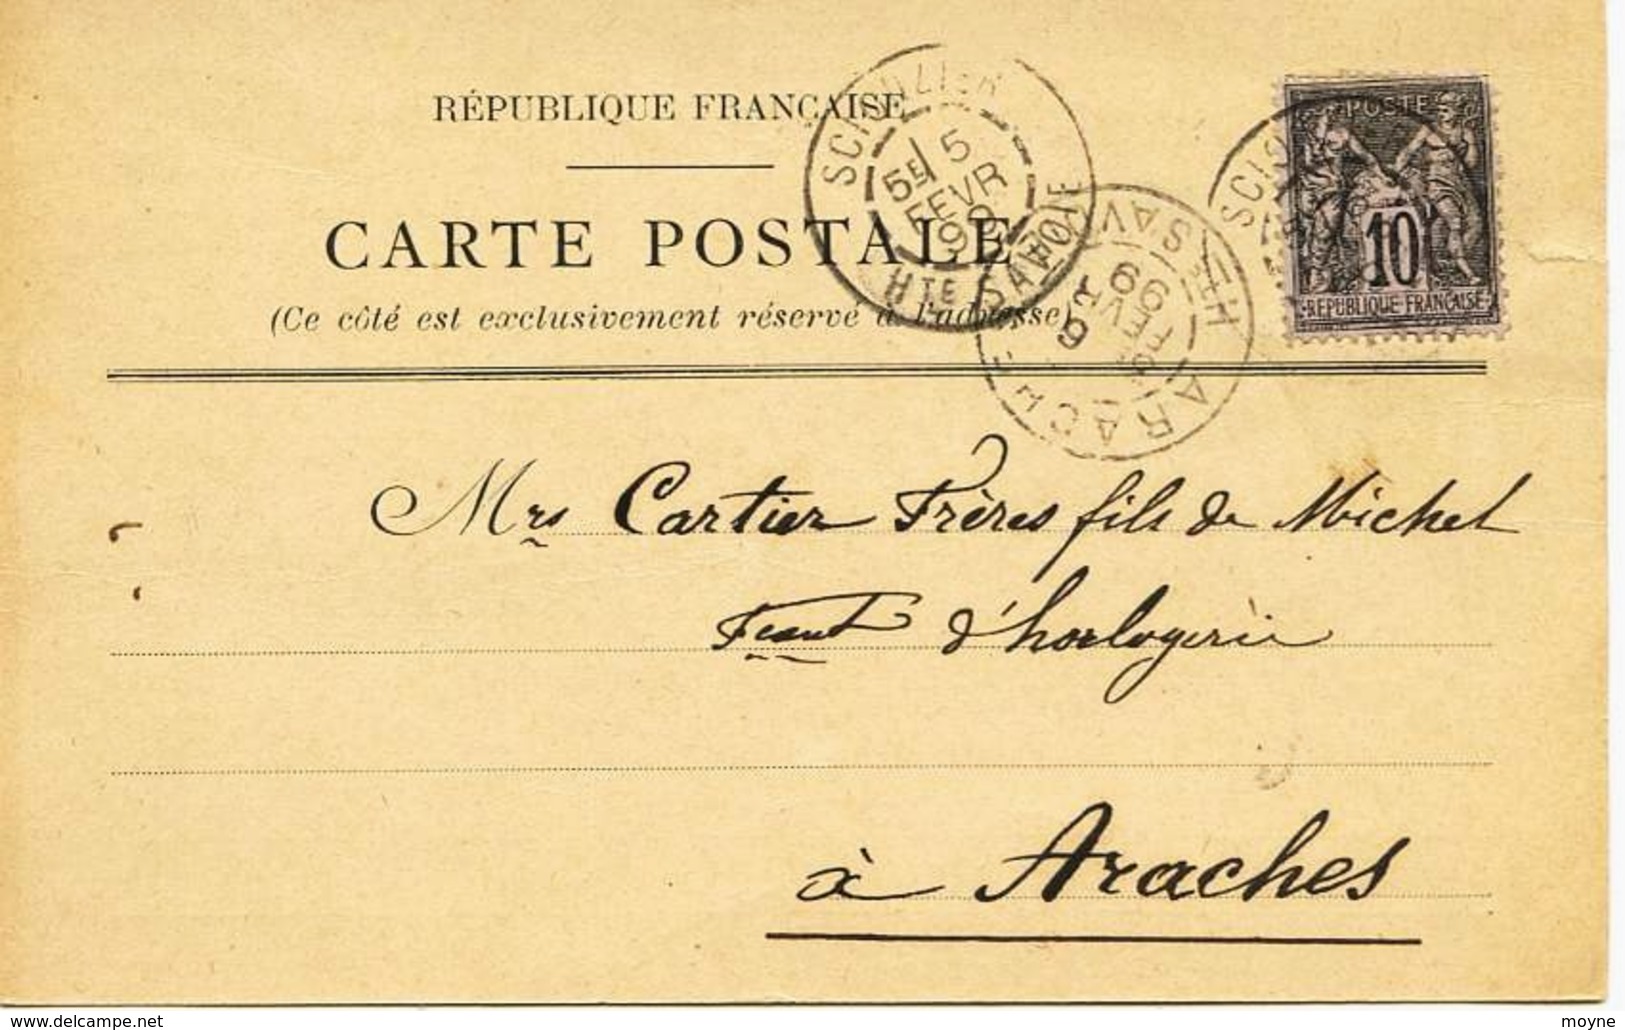 RÉPUBLIQUE FRANÇAISE
CARTE POSTALE
(Ce côté est exclusivement réservé à l'adresse)
SCIONZIER
5E
5
FEVR
99
HTE SAVOIE
ARACHES
HTE SAV
6
FEVR
99
SCIO
POSTE
10
REPUBLIQUE FRANÇAISE
Mrs Cartier Frères fils de Michel
Fcant d'horlogerie
à Araches
www.delcampe.net
moyne